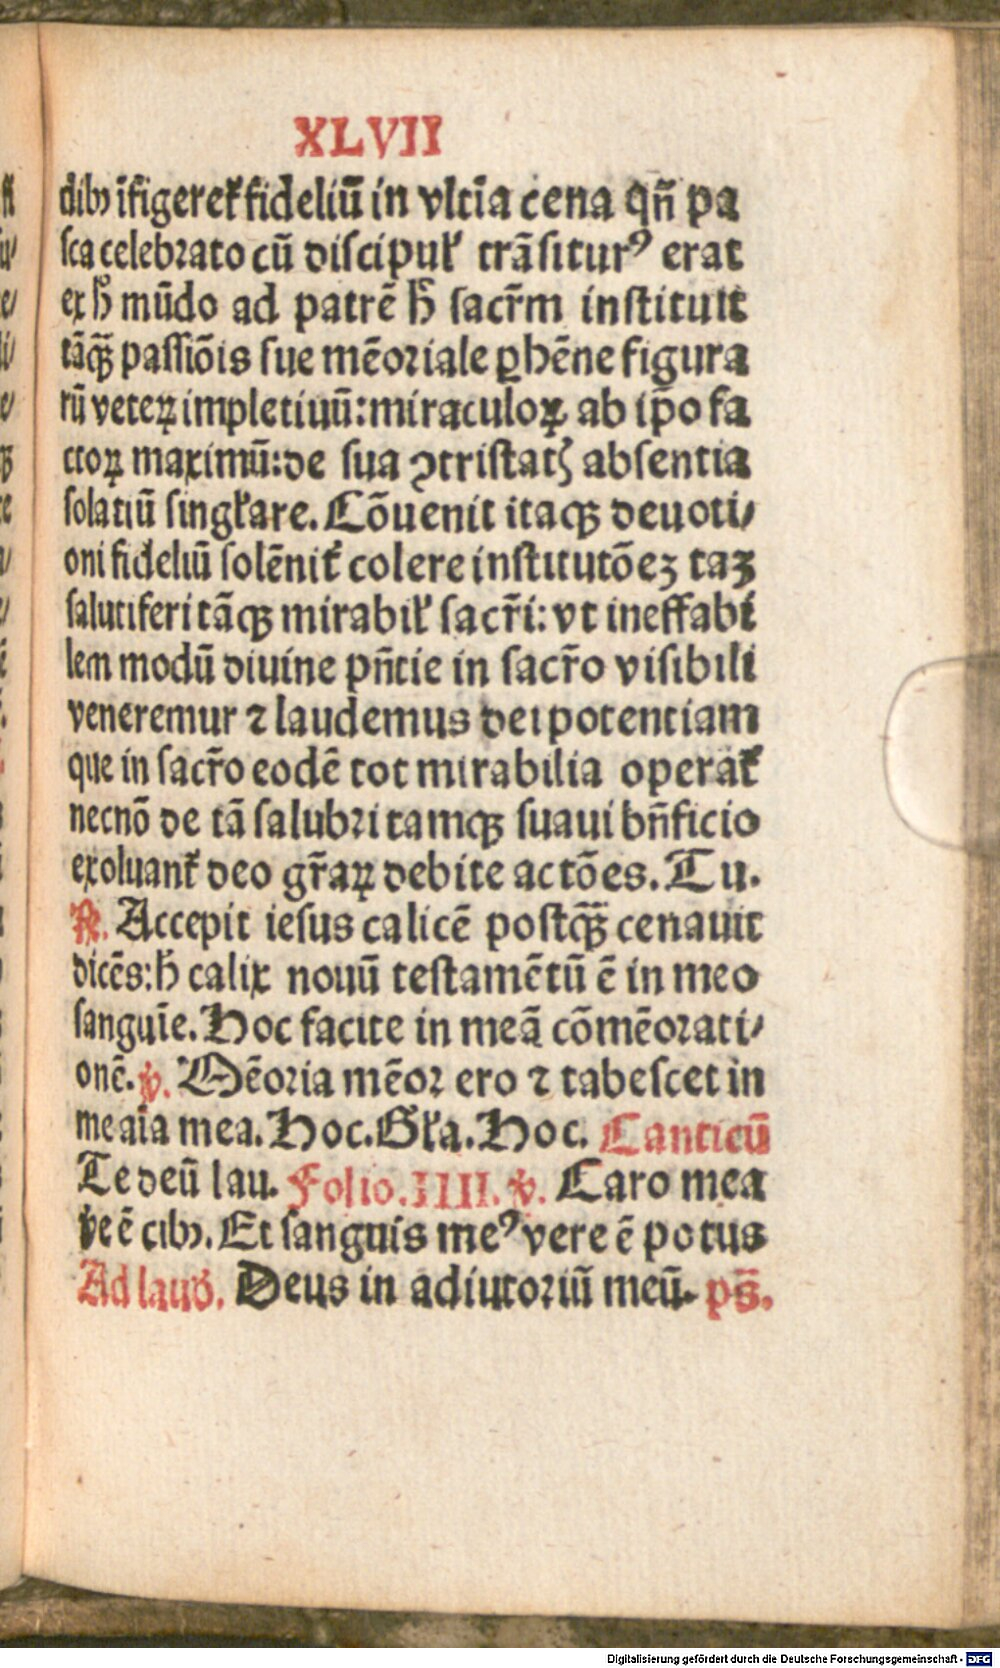 XLVII
dibꝫ īfigeret᷑ fideliū in vltīa cena qn̄ pa
sca celebrato cū discipul᷑ trāsiturꝰ erat
ex ħ mūdo ad patrē ħ sacr̄m instituit
tāqꝫ̄ passiōis sue mēoriale ꝑhēne figura
rū veteꝝ impletiuū: miraculoꝝ ab ip̄o fa
ctoꝝ maximū: de sua ꝯtristatꝭ absentia
solatiū singl᷑are. Cōuenit itaqꝫ deuoti⸗
oni fideliū solēnit᷑ colere institutōeꝫ taꝫ
salutiferi tāqꝫ mirabil᷑ sacr̄i: vt ineffabi
lem modū diuine pn̄tie in sacr̄o visibili
veneremur ⁊ laudemus dei potentiam
que in sacr̄o eodē tot mirabilia operat᷑
necnō de tā salubri tamqꝫ suaui bn̄ficio
exoluant᷑ deo gr̄aꝝ debite actōes. Tu.
℟. Accepit iesus calicē postqꝫ̄ cenauit
dicēs: ħ calix nouū testamētū ē in meo
sanguīe. Hoc facite in meā cōmēorati⸗
onē. ℣. Mēoria mēor ero ⁊ tabescet in
me aīa mea. Hoc. Gl᷑a. Hoc. Canticū
Te deū lau. Folio. IIII. ℣. Caro mea
v̄e ē cibꝫ. Et sanguis meꝰ vere ē potus
Ad laud᷑. Deus in adiutoriū meū. ps̄.
Digitalisierung gefördert durch die Deutsche Forschungsgemeinschaft - DFG